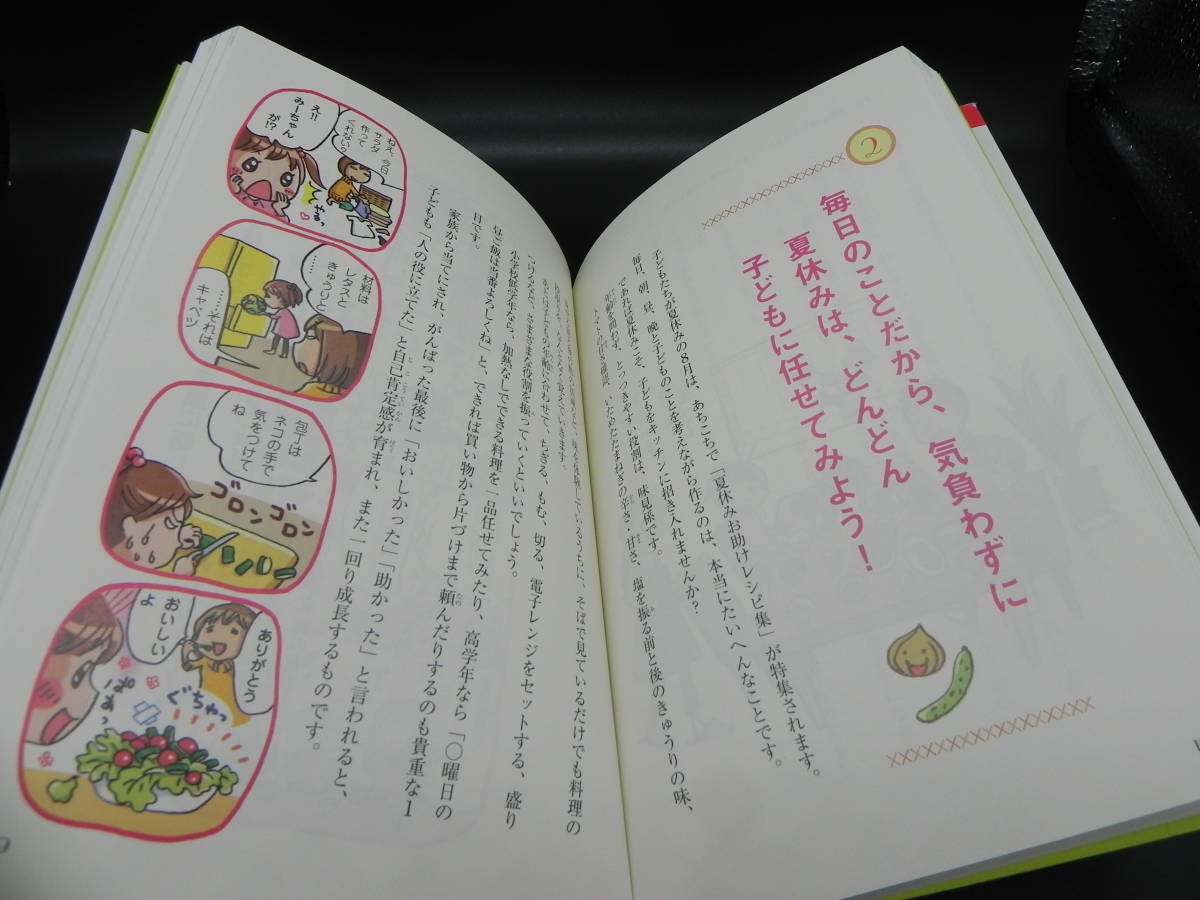 2
毎日のことだから、気負わずに
夏休みは、どんどん
子どもに任せてみよう！
子どもたちが夏休みの8月は、あちこちで「夏休みお助けレシピ集」が特集されます。
毎日、朝、昼、晩と子どものことを考えながら作るのは、本当にたいへんなことです。
できれば夏休みこそ、子どもをキッチンに招き入れませんか？
年齢を問わず、とっつきやすい役割は、味見係です。
トマトの甘さ確認、いためたたまねぎの辛さ・甘さ、塩を振る前と後のきゅうりの味、
しているうちに、そばで見ているだけでも料理の
あとは子どもの年齢に合わせて、ちぎる、もむ、切る、電子レンジをセットする、盛り
つけるなど、さまざまな役割を振っていくといいでしょう。
小学校低学年なら、加熱なしでできる料理を一品任せてみたり、高学年なら「〇曜日の
昼ご飯は当番よろしくね」と、できれば買い物から片づけまで頼んだりするのも貴重な1
日です。
家族から当てにされ、がんばった最後に「おいしかった」「助かった」と言われると、
子どもも「人の役に立てた」と自己肯定感が育まれ、また一回り成長するものです。
ねえ、今日
サラダ
作って
くれない？
え!!
みーちゃん
が!?
やるっ
材料は
レタスと
きゅうりと
……
……それは
キャベツ
包丁は
ネコの手で
気をつけて
ね
ゴロンゴロン
ありがとう
おいしい
よ
ぐちゃっ
ぱあっ
9